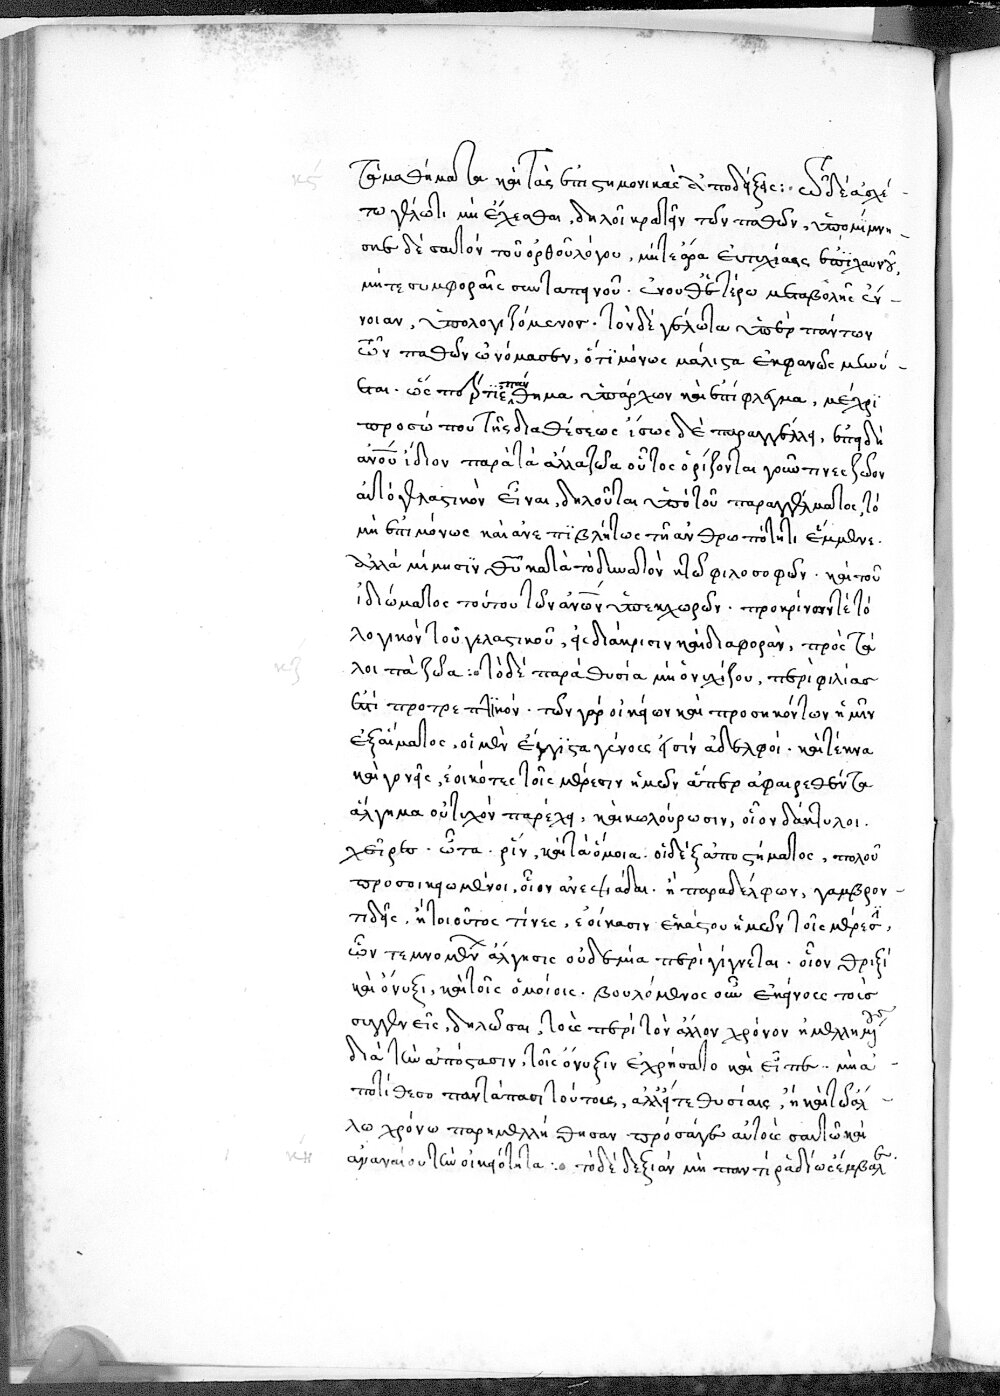 τὰ μαθήματα καὶ τὰς ἐπιστημονικὰς ἀποδείξεις :· τὸ δὲ ἀσχέ-
τω γέλωτι μὴ ἔχεσθαι, δηλοῖ κρατεῖν τῶν παθῶν, ὑπομίμνη-
σκε δὲ σαυτὸν τοῦ ὀρθοῦ λόγου, μήτε ἄρα εὐτυχίαις ἐπιχαυνοῦ,
μήτε συμφοραῖς συνταπεινοῦ. ἐν οὐθετέρω μεταβολῆς ἔν-
νοιαν, ὑπολογιζόμενον. τὸν δὲ γέλωτα ὑπὲρ πάντων
τῶν παθῶν ὠνόμασεν, ὅτι μόνως μάλιστα ἐκφανῶς μηνύ-
εται. ἐπάνθημα ὑπάρχων καὶ ἐπίφλεγμα, μέχρι
προσώπου τῆς διαθέσεως ἴσως δὲ παραγγέλλει, ἐπειδὴ
ἀνου ἴδιον παρὰ τὰ ἄλλα ζῶα οὗτος ὁρίζονται γοῦν τινες ζῶον
αὐτὸ γελαστικὸν εἶναι, δηλοῦται ὑπὸ τοῦ παραγγέλματος, τὸ
μὴ ἐπιμόνως καὶ ἀνεπιβλήτως τῆ ἀνθρωπότητι ἔμμενε.
ἀλλὰ μίμησιν θῦ κατὰ τὸ δυνατὸν κτῶ φιλοσοφῶν. καὶ τοῦ
ἰδιώματος τούτου τῶν ἀνων ὑπεκχωρῶν. προκρίνων τὲ τὸ
λογικὸν τοῦ γελαστικοῦ, εἰς διάκρισιν καὶ διαφορὰν, πρὸς τὰ
λοιπὰ ζῶα :· τὸ δὲ παρὰ θυσία μὴ ὀνυχίζου, περὶ φιλίας
ἐστὶ προτρεπτικόν. τῶν γὰρ οἰκείων καὶ προσηκόντων ἡμῖν
ἐξ αἵματος, οἱ μὲν ἔγγιστα γένους εἰσὶν ἀδελφοὶ. καὶ τέκνα
καὶ γονεῖς, ἐοικότες τοῖς μέρεσιν ἡμῶν ἅπερ ἀφαιρεθέντα
ἄλγημα οὐ τυχὸν παρέχει, καὶ κολούρωσιν, οἷον δάκτυλοι.
χεῖρες. ὦτα. ῥὶν, καὶ τὰ ὅμοια. οἱ δὲ ἐξ ἀποστήματος, πολοῦ
προσοικειωμένοι, οἷον ἀνεψιάδαι. ἢ παραδέλφων, γαμβρον-
τιδεῖς. ἢ τοιοῦτος τίνες, ἐοίκασιν ἑκάστου ἡμῶν τοῖς μέρεσϊ,
ὧν τεμνομένων ἄλγησις οὐδεμία περιγίγνεται. οἷον θριξί
καὶ ὄνυξι, καὶ τοῖς ὁμοίοις. βουλόμενος οὖν ἐκείνους τοὺς
συγγενεῖς, δηλῶσαι, τοὺς περὶ τὸν ἄλλον χρόνον ἠμελημένους
διὰ τὴν ἀπόστασιν, τοῖς ὄνυξιν ἐχρήσατο καὶ εἶπε. μὴ ἀ-
ποτίθεσο παντάπασι τούτους, ἀλλ' εἴτε θυσίαις, ἢ καὶ τῶ ἄλ-
λω χρόνω παρημελήθησαν προσάγου αὐτοὺς σαυτῶ καὶ
ἀνανέου τὴν οἰκειότητα :· τὸ δὲ δεξιὰν μὴ παντὶ ῥαδίως ἔμβαλε.